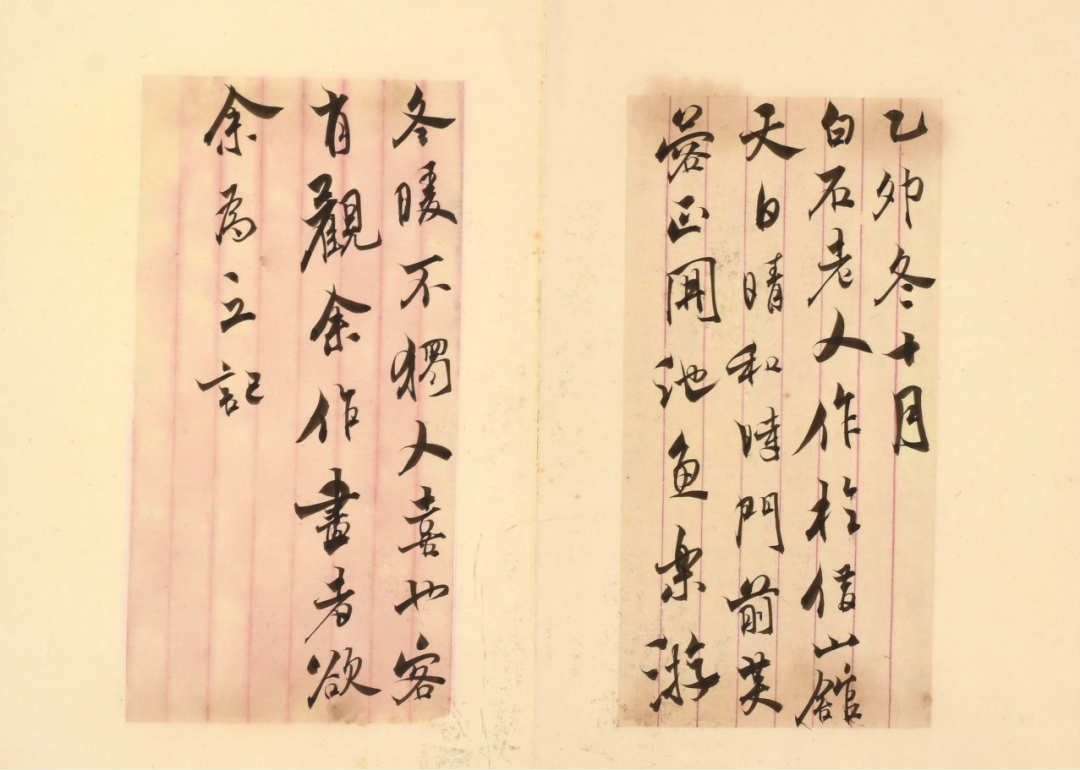 乙卯冬十月
白石老人作於借山館
天日晴和時門前芙
蓉正開池魚樂游
冬暖不獨人喜也客
有觀余作畫者欲
余為之記